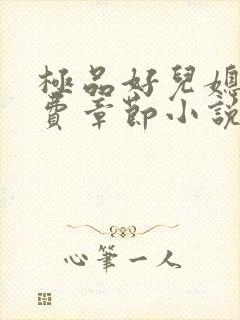 極品好兒媳
費章節小說
心筆一人